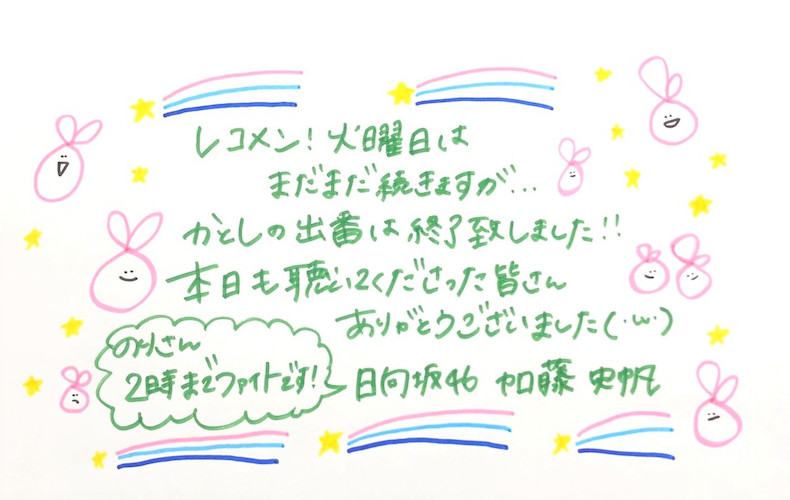 レコメン!火曜日は
まだまだ続きますが...
かとしの出番は終了致しました!!
本日も聴いてくださった皆さん
ありがとうございました(・ω・)
のりさん
2時までファイトです!
日向坂46 加藤 史帆